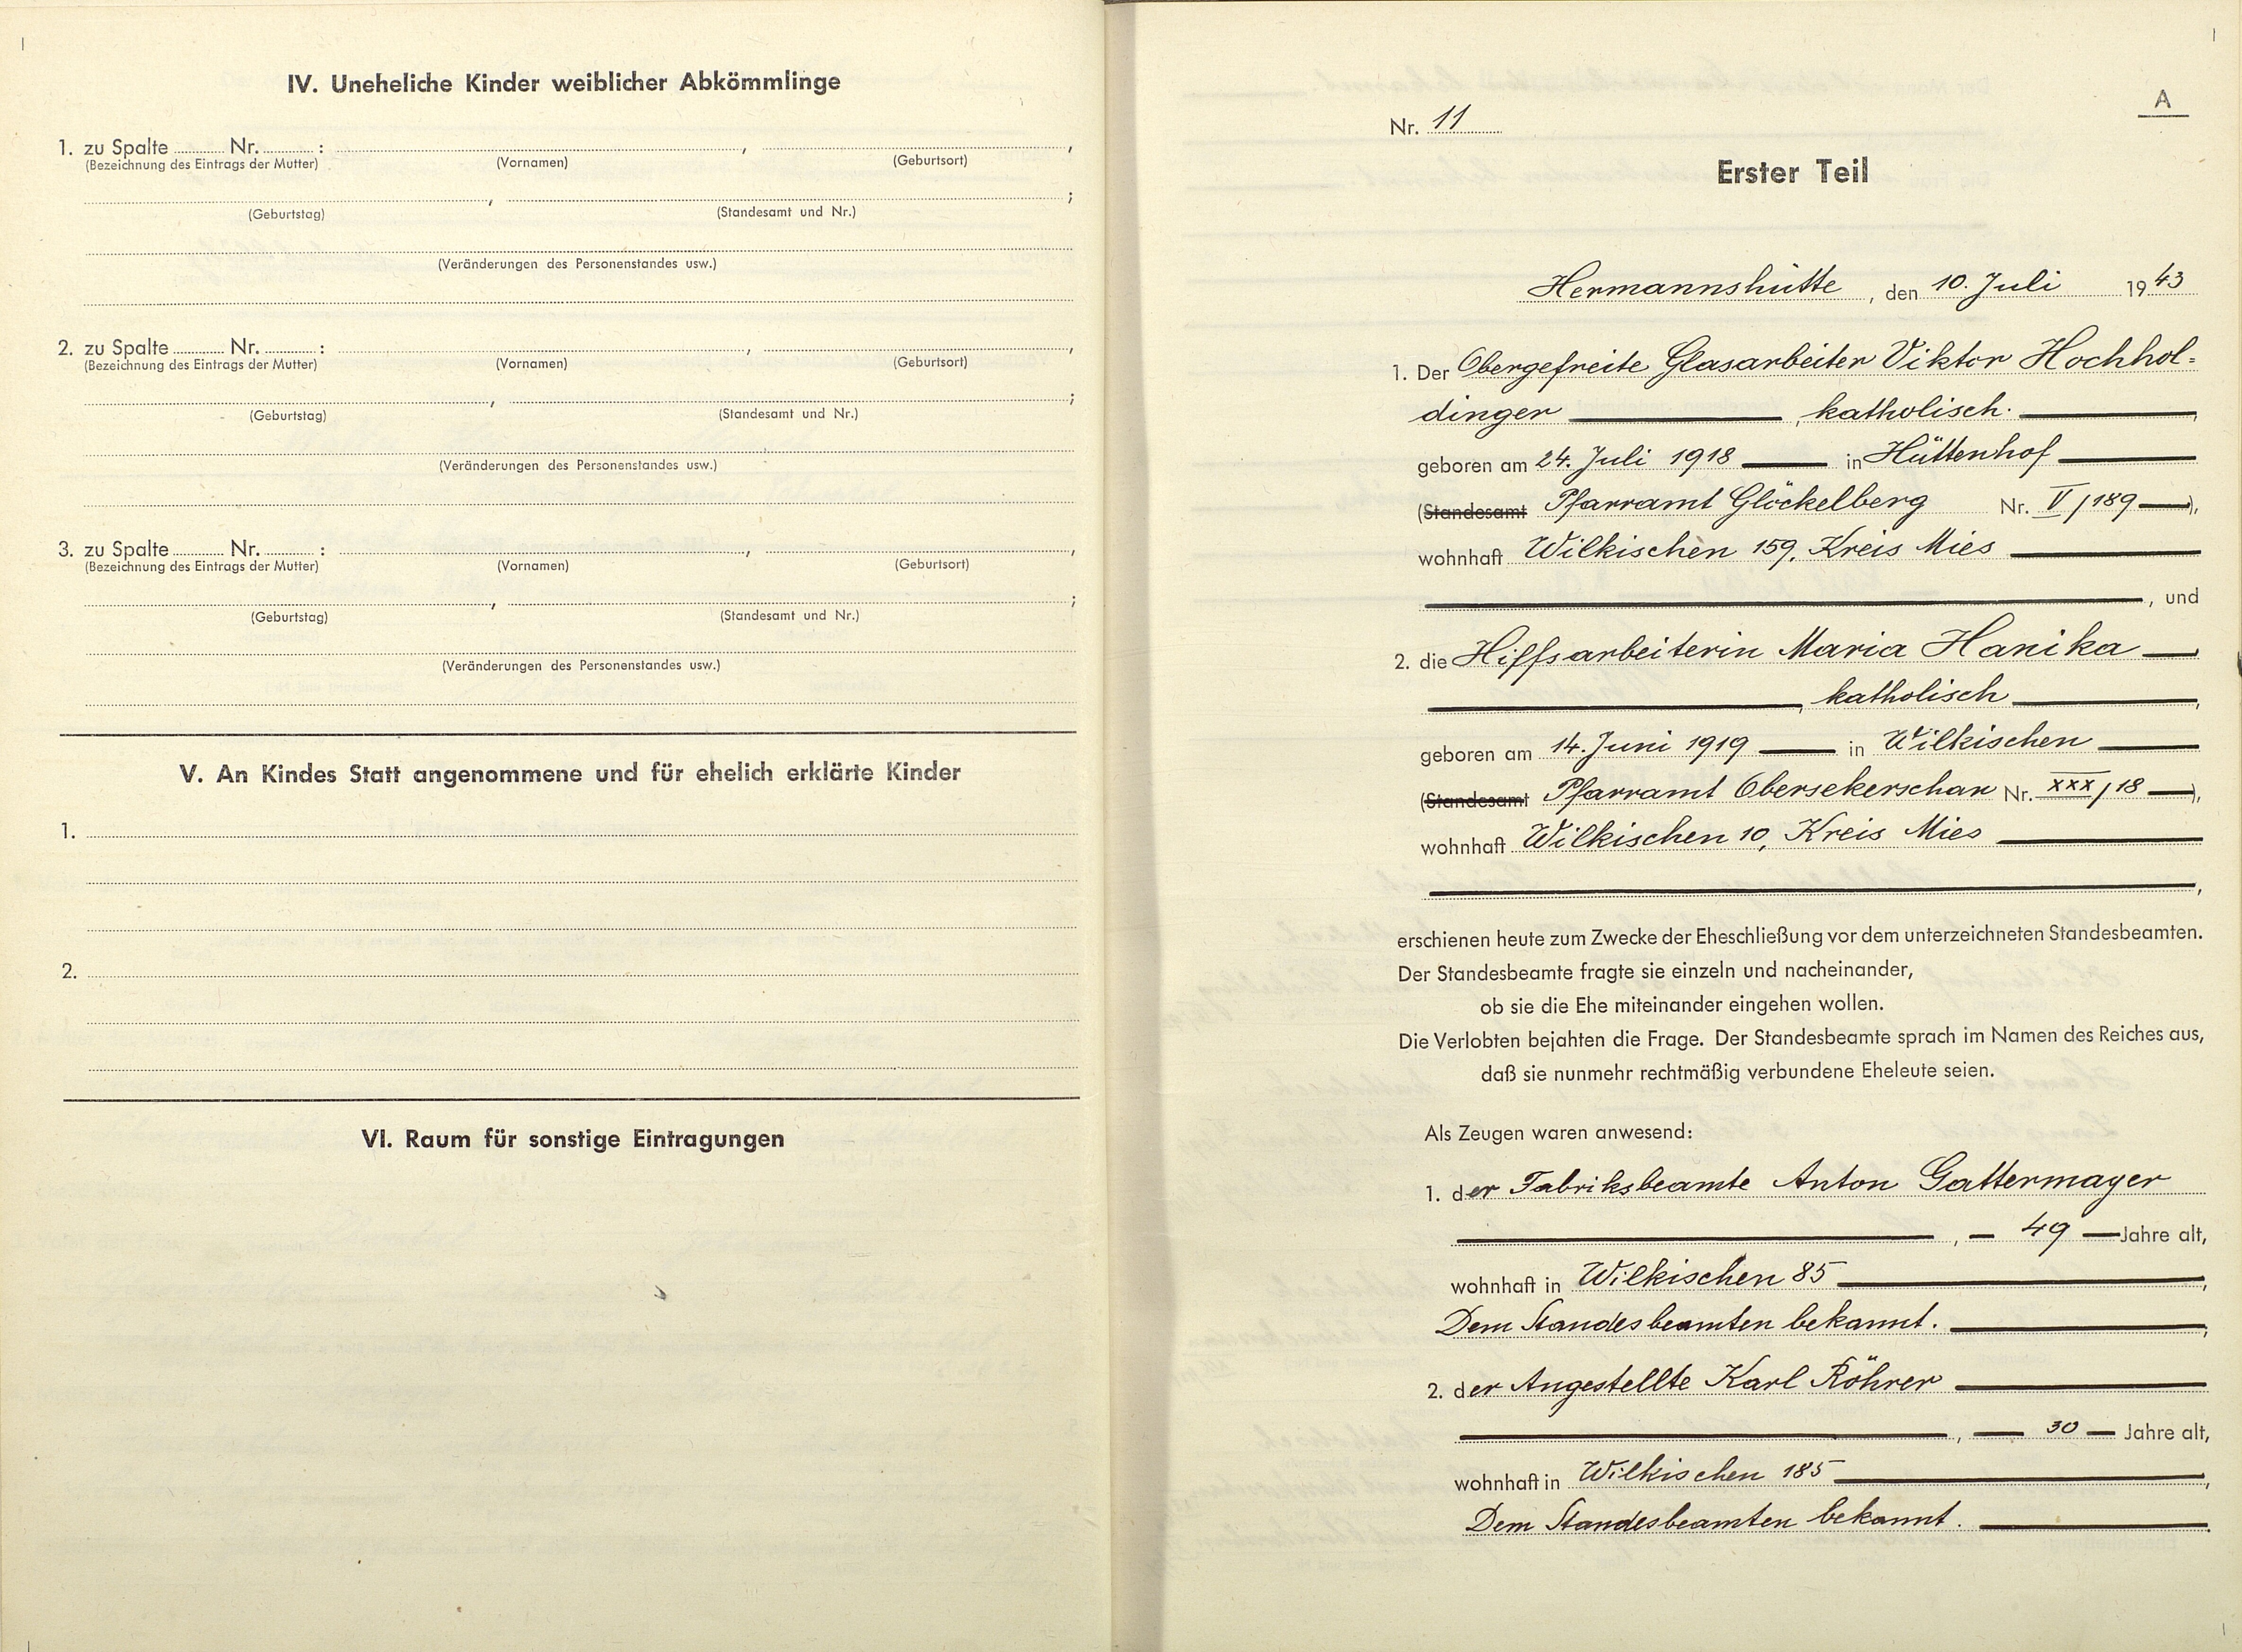 IV. Uneheliche Kinder weiblicher Abkömmlinge
1. zu Spalte ........ Nr. ........ : ........ , ........ ,
(Bezeichnung des Eintrags der Mutter) (Vornamen) (Geburtsort)
........ , ........ ;
(Geburtstag) (Standesamt und Nr.)
(Veränderungen des Personenstandes usw.)
2. zu Spalte ........ Nr. ........ : ........ , ........ ,
(Bezeichnung des Eintrags der Mutter) (Vornamen) (Geburtsort)
........ , ........ ;
(Geburtstag) (Standesamt und Nr.)
(Veränderungen des Personenstandes usw.)
3. zu Spalte ........ Nr. ........ : ........ , ........ ,
(Bezeichnung des Eintrags der Mutter) (Vornamen) (Geburtsort)
........ , ........ ;
(Geburtstag) (Standesamt und Nr.)
(Veränderungen des Personenstandes usw.)
V. An Kindes Statt angenommene und für ehelich erklärte Kinder
1.
2.
VI. Raum für sonstige Eintragungen
A
Nr. 11
Erster Teil
Hermannshütte, den 10. Juli 1943
1. Der Obergefreite Glasarbeiter Viktor Hochhol=
dinger, katholisch.
geboren am 24. Juli 1918 in Hüttenhof
(Standesamt Pfarramt Glöckelberg Nr. V/189),
wohnhaft Wilkischen 159, Kreis Mies
, und
2. die Hilfsarbeiterin Maria Hanika
, katholisch,
geboren am 14. Juni 1919 in Wilkischen
(Standesamt Pfarramt Obersekerschan Nr. XXX/18),
wohnhaft Wilkischen 10, Kreis Mies
,
erschienen heute zum Zwecke der Eheschließung vor dem unterzeichneten Standesbeamten.
Der Standesbeamte fragte sie einzeln und nacheinander,
ob sie die Ehe miteinander eingehen wollen.
Die Verlobten bejahten die Frage. Der Standesbeamte sprach im Namen des Reiches aus,
daß sie nunmehr rechtmäßig verbundene Eheleute seien.
Als Zeugen waren anwesend:
1. der Fabriksbeamte Anton Gattermayer
, 49 Jahre alt,
wohnhaft in Wilkischen 85,
Dem Standesbeamten bekannt.
2. der Angestellte Karl Röhrer
, 30 Jahre alt,
wohnhaft in Wilkischen 185,
Dem Standesbeamten bekannt.